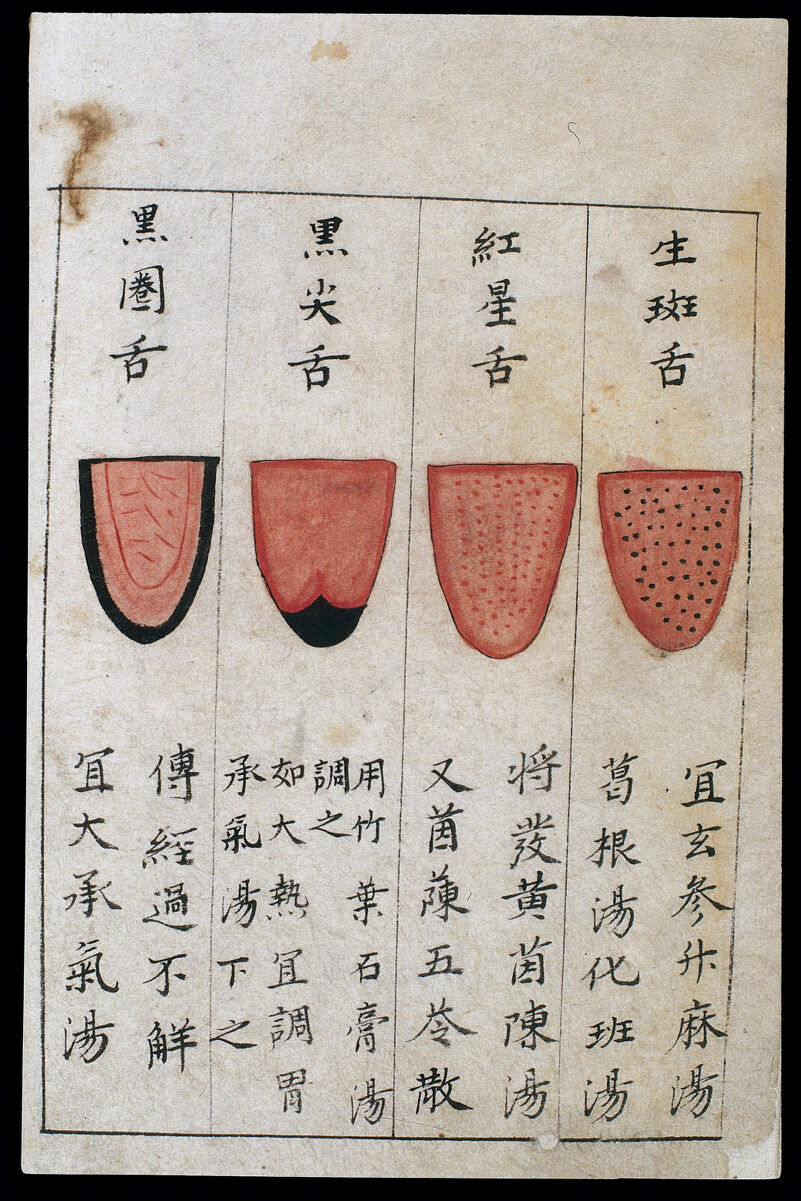 生斑舌
宜玄參升麻湯
葛根湯化班湯
紅星舌
将發黄茵陳湯
又茵蔯五苓散
黒尖舌
用竹葉石膏湯
調之
如大熱宜調胃
承氣湯下之
黒圈舌
傳經過不解
宜大承氣湯